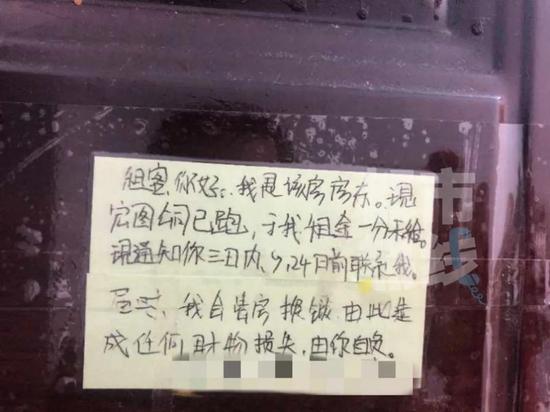 租客，你好：我是该房房东。现
宏图公司已跑，于我租金一分未给。
现通知你三日内、9.24日前联系我。
我自清房换锁，由此造
成任何财物损失，由你自负。
市
线